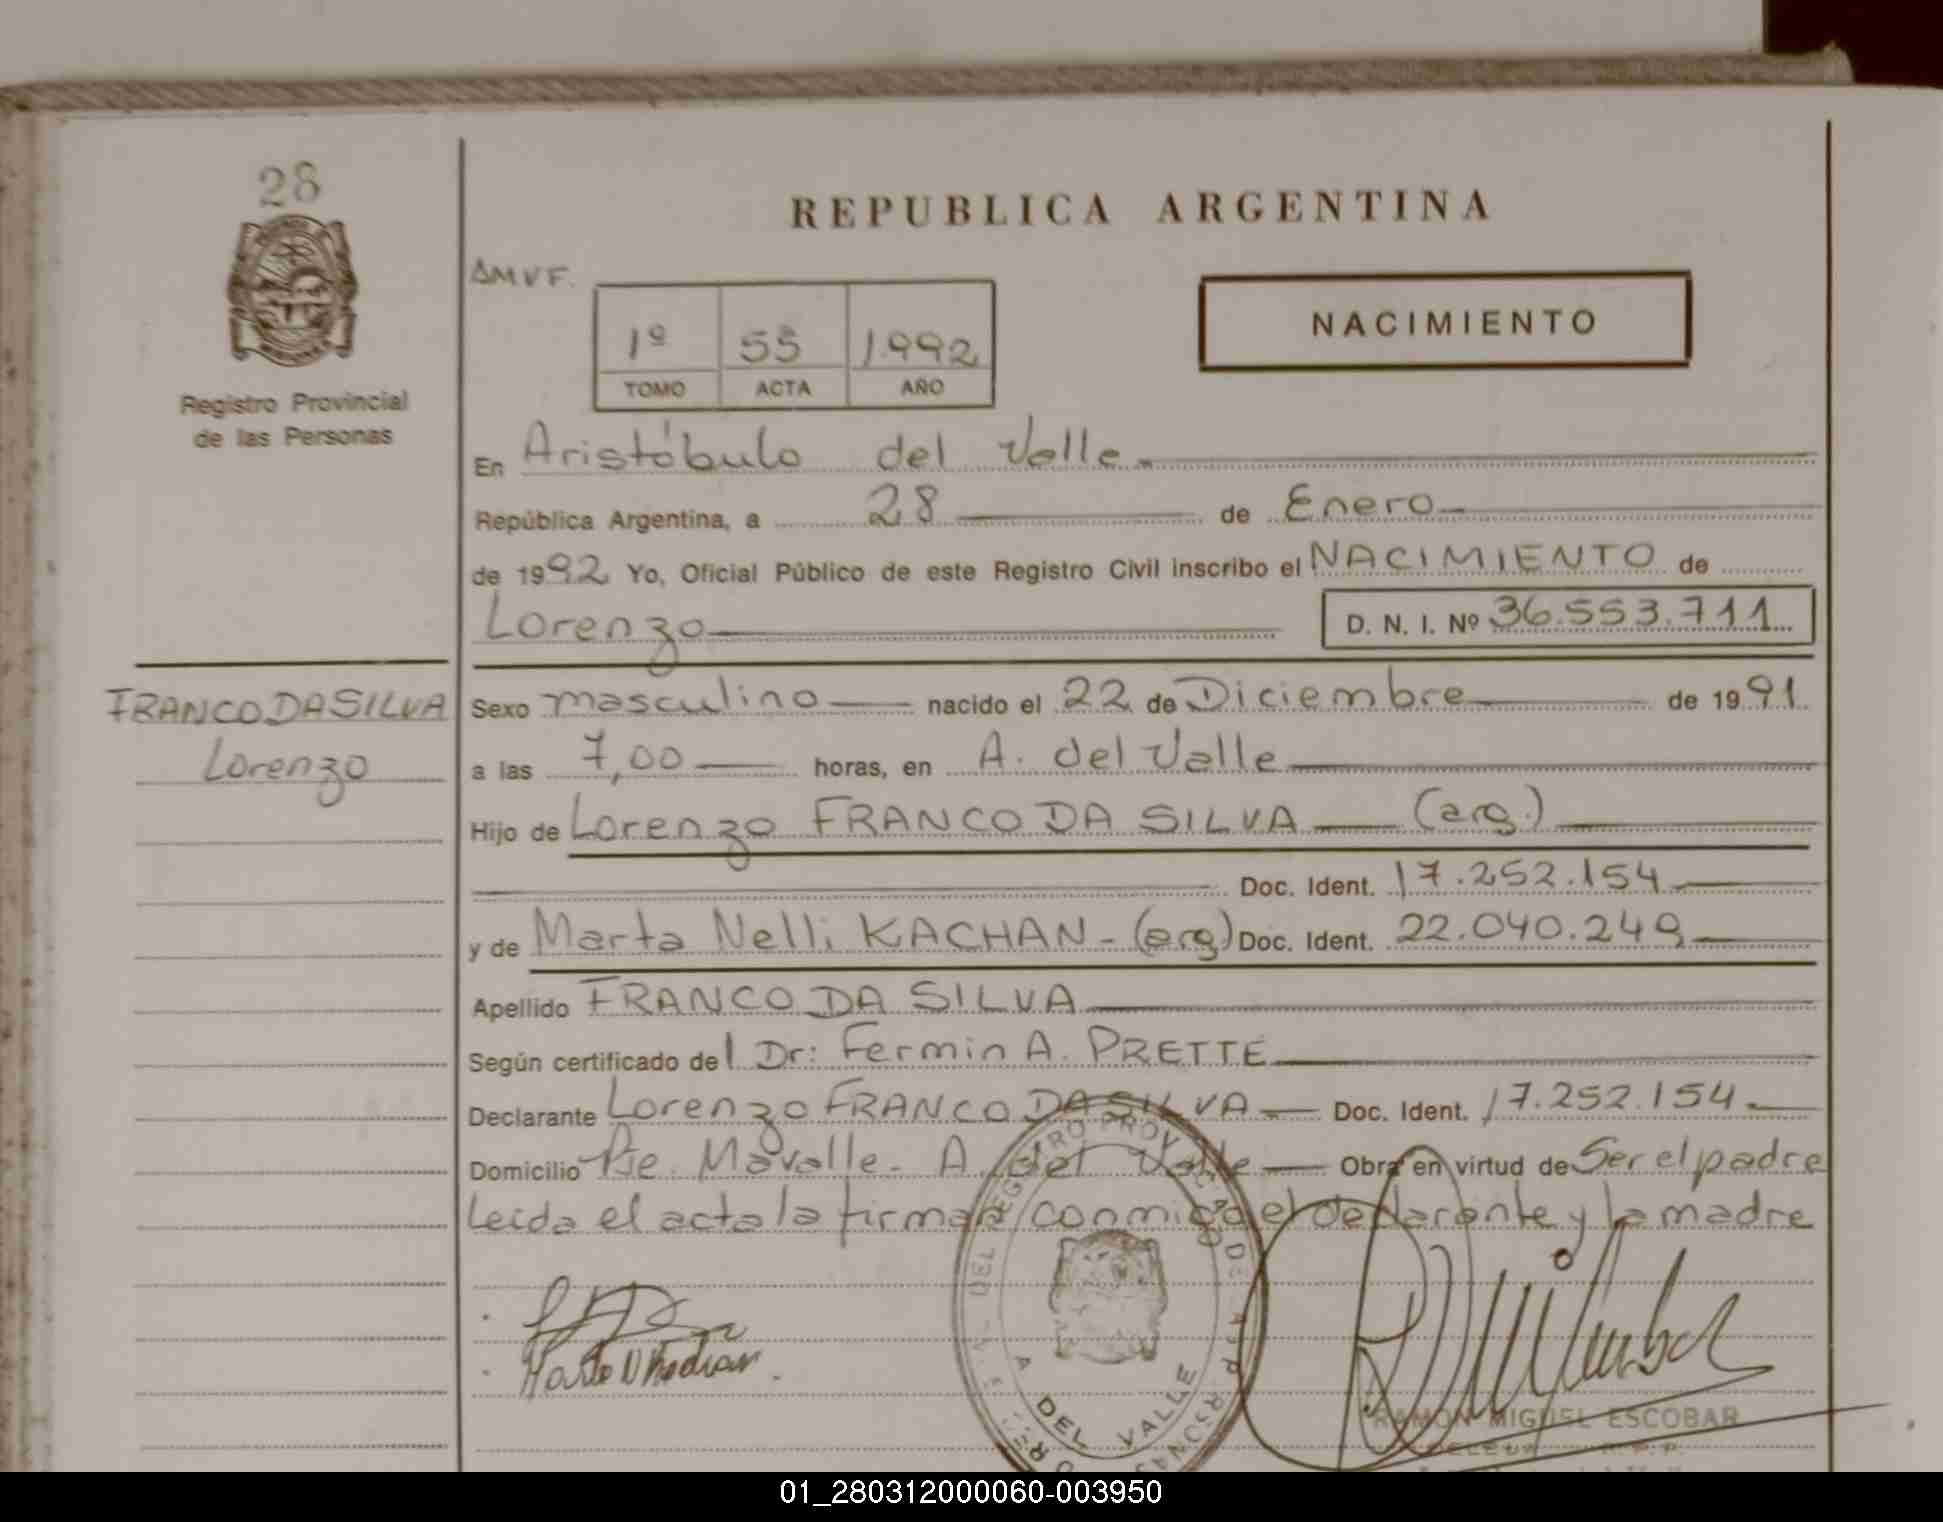 28
REPUBLICA ARGENTINA
AMVF.
NACIMIENTO
1º 55 1.992
TOMO ACTA AÑO
Registro Provincial
de las Personas
En Aristóbulo del Valle.
República Argentina, a 28 de Enero
de 1992 Yo, Oficial Público de este Registro Civil inscribo el NACIMIENTO de
Lorenzo D. N. I. Nº 36.553.711
FRANCO DA SILVA
Lorenzo
Sexo masculino nacido el 22 de Diciembre de 1991.
a las 7,00 horas, en A. del Valle
Hijo de Lorenzo FRANCO DA SILVA (arg.)
Doc. Ident. 17.252.154
y de Marta Nelli KACHAN - (arg) Doc. Ident. 22.040.249
Apellido FRANCO DA SILVA
Según certificado del Dr: Fermin A. PRETTE
Declarante Lorenzo FRANCO DA SILVA Doc. Ident. 17.252.154
Domicilio Pje. Mavalle - A. del Valle Obra en virtud de Ser el padre
Leida el acta la firman conmigo el declarante y la madre
A DEL VALLE
RAMON MIGUEL ESCOBAR
01_280312000060-003950